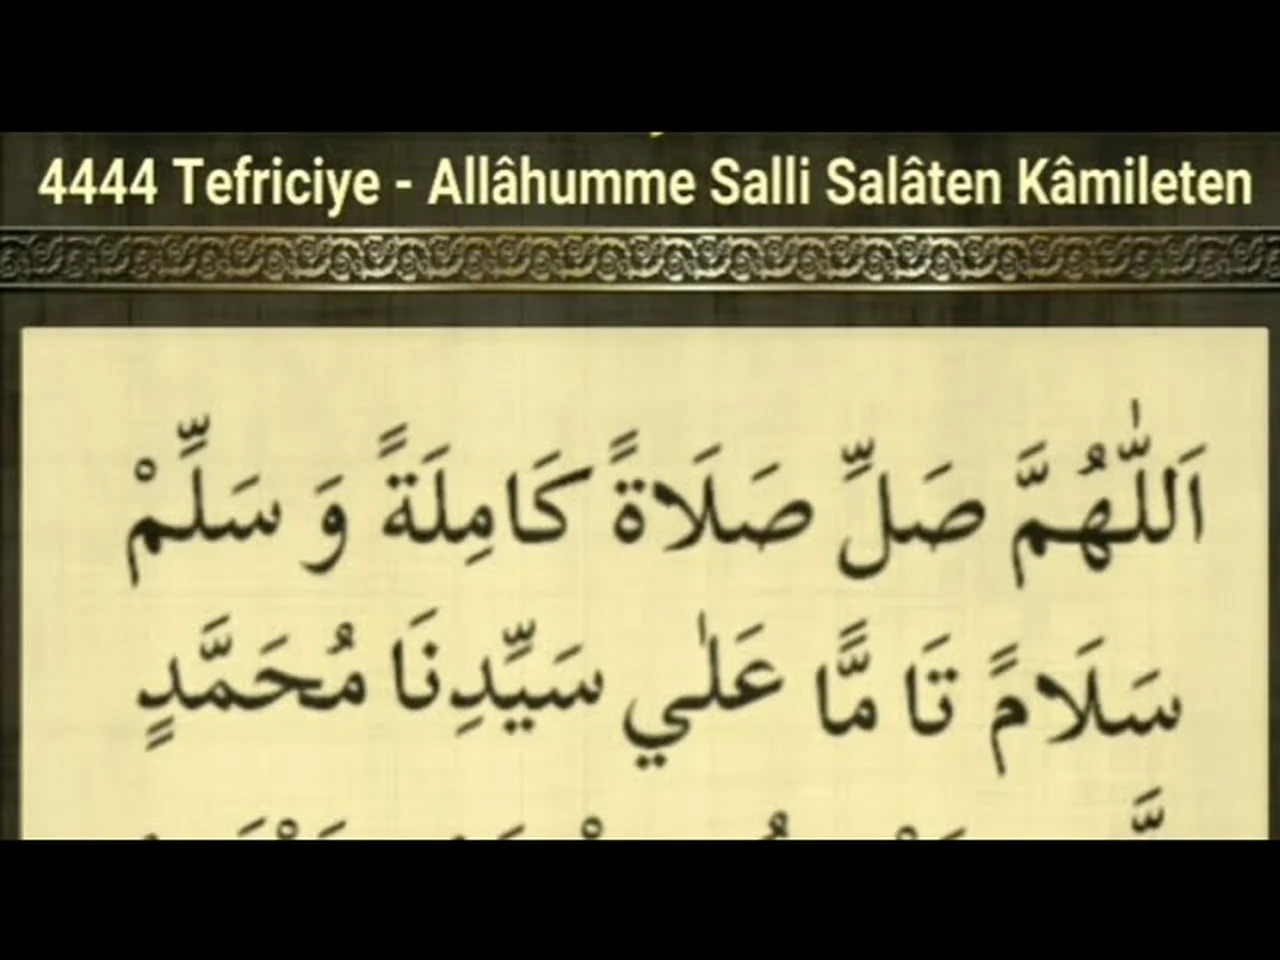 4444 Tefriciye - Allâhumme Salli Salâten Kâmileten
اَللّٰهُمَّ صَلِّ صَلَاةً كَامِلَةً وَ سَلِّمْ
سَلَامً تَا مًّا عَلٰي سَيِّدِنَا مُحَمَّدٍ